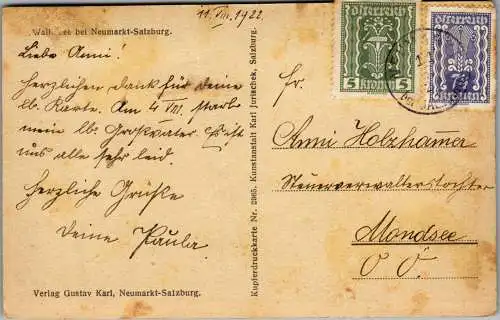 11. VIII. 1922.
Wall see bei Neumarkt-Salzburg.
Liebe Anni!
Herzlichen Dank für deine
lb. Karte. Am 4. VIII. starb
mein lb. Großvater. Es ist
uns alle sehr leid.
Herzliche Grüße
deine Paula.
Verlag Gustav Karl, Neumarkt-Salzburg.
Kupferdruckkarte Nr. 2965. Kunstanstalt Karl Jurischek, Salzburg.
österreich
5 5
kronen
österreich
7½
kronen
Fr.
Anni Holzhammer
Steuerverwalterstochter
Mondsee
O Ö.